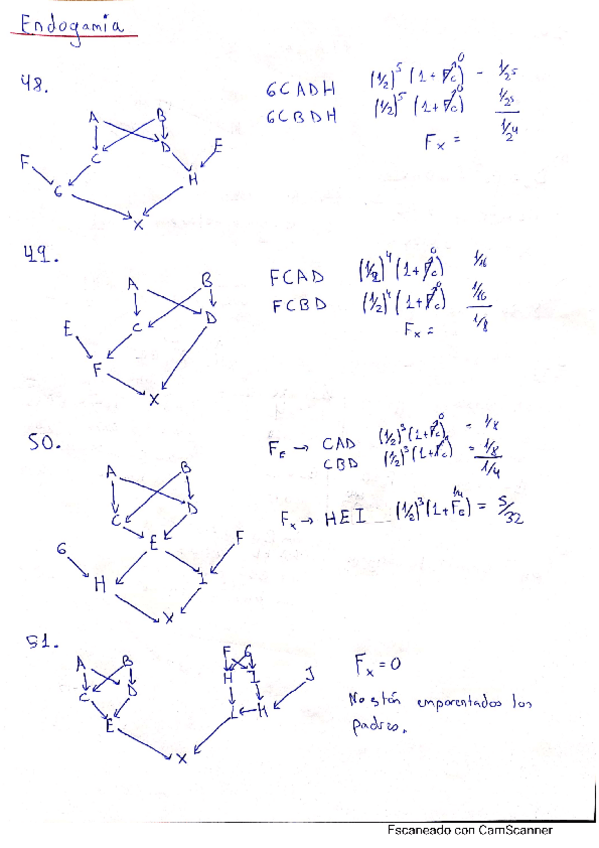 Endogamia
48.
A B
F C D E
G H
X
GCADH (1/2)^5 (1 + Fc)^0 - 1/2^5
GCBDH (1/2)^5 (1 + Fc)^0 1/2^5
Fx = 1/2^4
49.
A B
E C D
F
X
FCAD (1/2)^4 (1 + Fc)^0 1/16
FCBD (1/2)^4 (1 + Fc)^0 1/16
Fx = 1/8
50.
A B
C D
G E F
H I
X
FE → CAD (1/2)^3 (1 + Fc)^0 = 1/8
CBD (1/2)^3 (1 + Fc)^0 = 1/8
1/4
Fx → HEI (1/2)^3 (1 + FE)^1/4 = 5/32
51.
A B F G
C D H I J
E H
X
Fx = 0
No están emparentados los
padres.
Escaneado con CamScanner